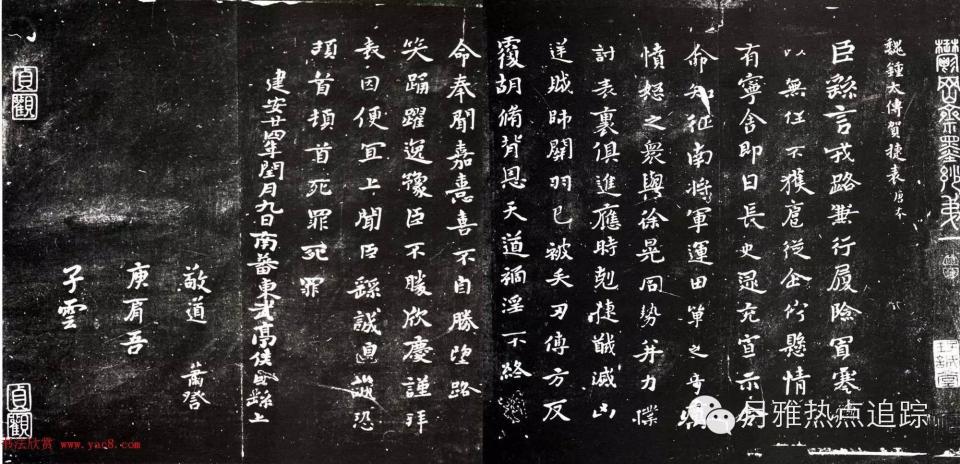 鬱岡齋墨妙弟一
魏鍾太傅賀捷表 唐本
臣繇言戎路兼行履險冒寒臣
以無任不獲扈從企佇懸情
有寧舍即日長史逯充宣示令
命知征南將軍運田單之奇
憤怒之衆與徐晃同勢并力撲
討表裏俱進應時剋捷馘滅凶
逆賊帥關羽已被矢刃傅方反
覆胡脩背恩天道禍淫不終
命奉聞嘉憙喜不自勝望路
笑踊躍逸豫臣不勝欣慶謹拜
表因便宜上聞臣繇誠惶誠恐
頓首頓首死罪死罪
建安廿四年閏月九日南蕃東武亭侯臣繇上
敬道
庾肩吾
子雲
貞觀
貞觀
书法欣赏 www.yac8.com
雅热点追踪